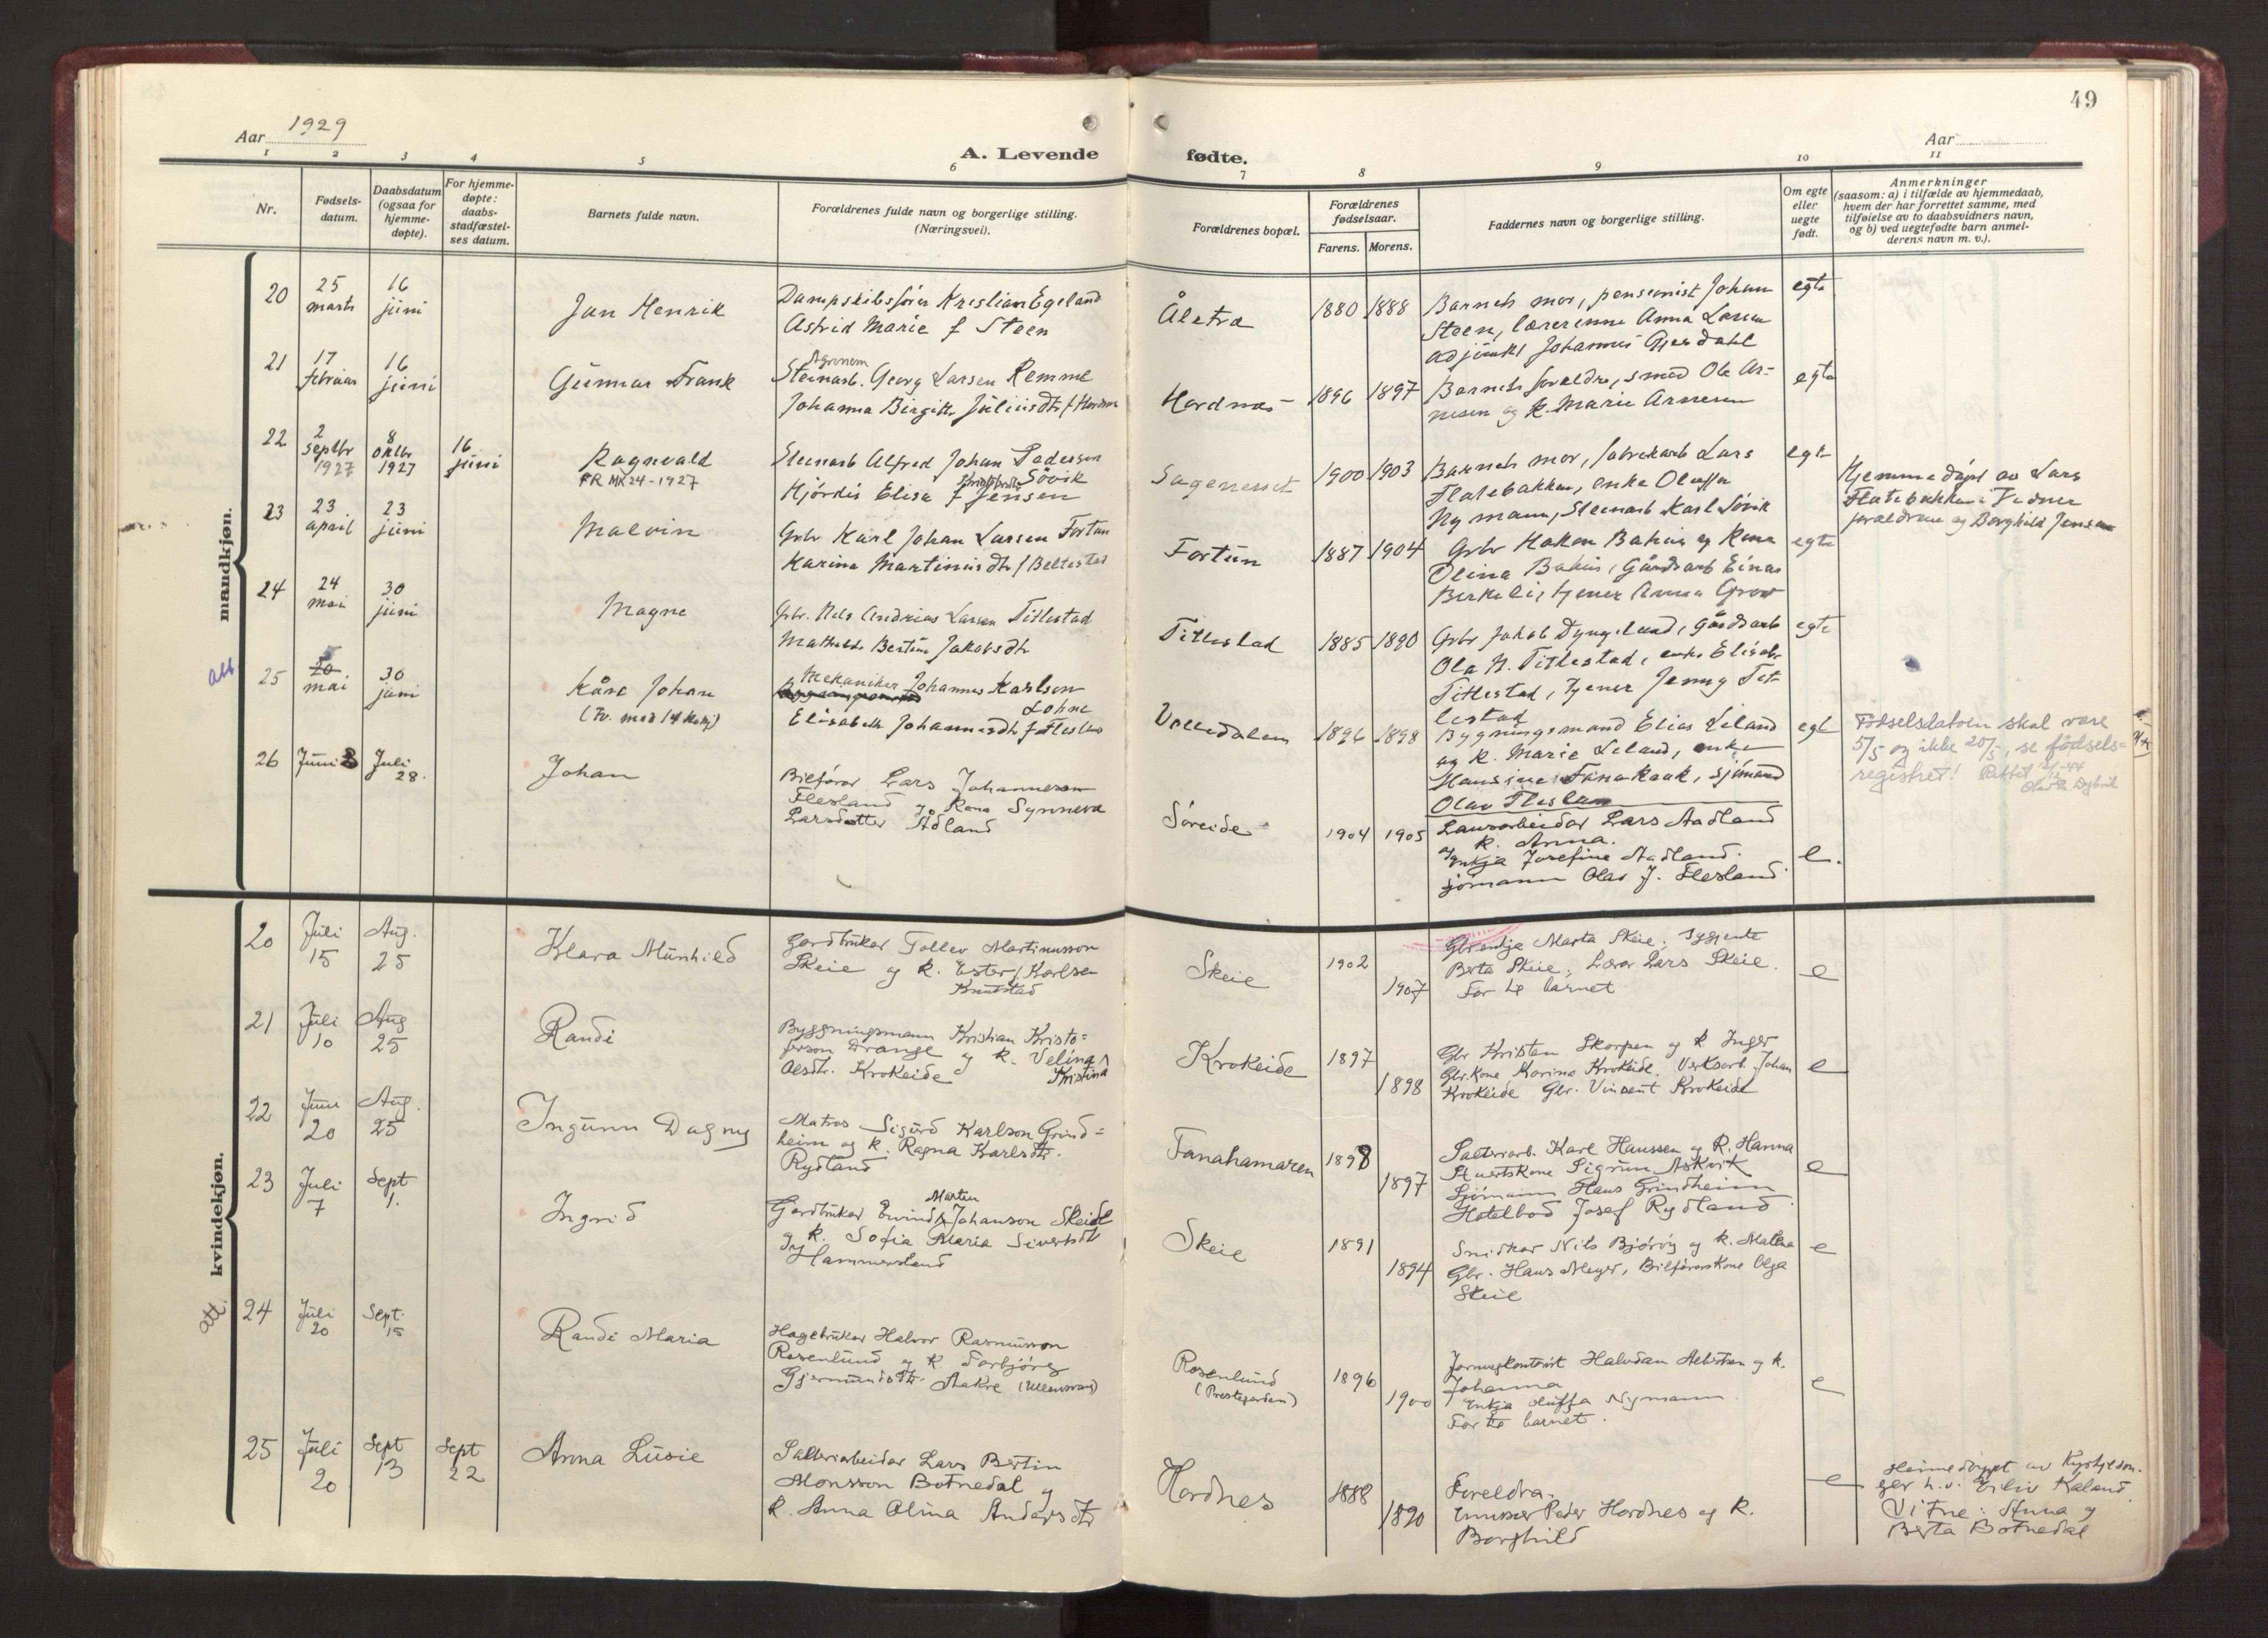 49
Aar 1929
Aar
A. Levende fødte.
1 2 3 4 5 6 7 8 9 10 11
Nr.
Fødsels-
datum.
Daabsdatum
(ogsaa for
hjemme-
døpte).
For hjemme-
døpte:
daabs-
stadfæstel-
ses datum.
Barnets fulde navn.
Forældrenes fulde navn og borgerlige stilling.
(Næringsvei).
Forældrenes bopæl.
Forældrenes
fødselsaar.
Farens. Morens.
Faddernes navn og borgerlige stilling.
Om egte
eller
uegte
født.
Anmerkninger
(saasom: a) i tilfælde av hjemmedaab,
hvem der har forrettet samme, med
tilføielse av to daabsvidners navn,
og b) ved uegtefødte barn anmel-
derens navn m. v.).
mandkjøn.
20
25
marts
16
juni
Jan Henrik
Dampskibsfører Kristian Egeland
Astrid Marie f Steen
Åletræ
1880 1888
Barnets mor, pensionist Johan
Steen, lærerinne Anna Larsen
adjunkt Johannes Gjerdahl
egte
21
17
februar
16
juni
Gunnar Frank
Agronom
Steinarb. Georg Larsen Remme
Johanna Birgitte Juliusdtr f Hordnes
Hordnæs
1896 1897
Barnets foreldre, smed Ole Ar-
nesen og k. Marie Arnesen
egte
22
2
septbr
1927
8
oktbr
1927
16
juni
Ragnvald
FR MK 24-1927
Steinarb Alfred Johan Pedersen
Søvik
Hjørdis Elisa f Jensen
Sageneset
1900 1903
Barnets mor, fabrikarb Lars
Flatebakken, enke Oluffa
Nymann, Steinarb Karl Søvik
egte
Hjemmedøpt av Lars
Flatebakken. Vidner
foreldrene og Borghild Jensen
23
23
april
23
juni
Malvin
Gbr Karl Johan Larsen Fortun
Karina Martinusdtr f Beltestad
Fortun
1887 1904
Gbr Hakon Bahus og Kona
Olina Bahus, Gårdsarb Einar
Birkeli, tjener Anna Grov
egte
24
24
mai
30
juni
Magne
Gbr. Nils Andreas Larsen Titlestad
Mathilde Bertine Jakobsdtr
Titlestad
1885 1890
Gbr Jakob Dyngeland, Gårdsarb
Ola N. Titlestad, enke Elisabe
Titlestad, tjener Jenny Tit-
lestad
egte
att.
25
20
5
mai
30
juni
Kåre Johan
Mekaniker Johannes Karlsen
Lohne
Elisabeth Johannesdtr f Flesland
Vallesdalen
1896 1898
Bygningsmand Elias Liland
og k. Marie Liland, enke
Hansine Fanakaak, sjømand
Olav Flesland
egte
Fødselsdatoen skal være
5/5 og ikke 20/5, se fødsels-
registret! Rettet 12/12-44
26
Juni 3
Juli
28.
Johan
Bilførar Lars Johannesson
Flesland og Kona Synneva
Larsdotter Ådland
Søreide
1904 1905
Lausarbeidar Lars Aadland
og k. Anna.
Enkja Josefine Aadland.
sjømann Olav J. Flesland.
e.
kvindekjøn.
20
Juli
15
Aug.
25
Klara Munhild
Gardbrukar Tollev Martinusson
Skeie og k. Ester f Karlsen
Knutstad
Skeie
1902
1907
Gbr.enkja Marta Skeie; Sygjente
Berta Skeie; Lærar Lars Skeie.
Far til barnet
e
21
Juli
10
Aug
25
Randi
Byggningsmann Kristian Kristo=
ferson Drange og k. Velina
Kristina
Olesdtr. Krokeide
Krokeide
1897
1898
Gbr Kristen Skorpen og k Inger
Gbr.kone Karina Krokeide. Verksarb. Johan
Krokeide Gbr. Vincent Krokeide
e
22
Juni
20
Aug.
25
Ingunn Dagny
Matros Sigurd Karlson Grind=
heim og k. Ragna Karlsdtr.
Rydland
Fanahamaren
1898
1897
Salteriarb. Karl Hanssen og k. Hanna
Stuertskone Sigrun Askvik
Sjømann Hans Grindheim
Hotelbod Josef Rydland.
e
23
Juli
7
Sept
1.
Ingrid
Martin
Gardbrukar Eivind Johanson Skeie
og k. Sofia Maria Sivertsdtr
Hammersland
Skeie
1891
1894
Snidkar Nils Bjørøy og k. Malena
Gbr. Hans Meyer, Bilførarskone Olga
Skeie
e
att.
24
Juli
20
Sept.
15
Randi Maria
Hagebrukar Halvor Rasmusson
Rosenlund og k. Torbjørg
Gjermundsdtr. Aakre (Ullensvang)
Rosenlund
(Prestegarden)
1896
1900
Halvdan
og k.
Johanna
Enkja Oluffa Nymann
Far til barnet.
e
25
Juli
20
Sept
13
Sept
22
Anna Lusie
Salteriarbeidar Lars Bertin
Monsson Botnedal og
k. Anna Olina Andersdtr
Hordnes
1888
1890
Foreldra.
Peder Hordnes og k.
Borghild
e
Heimedøypt av
Eiliv Kaland.
Vitne: Anna og
Berta Botnedal